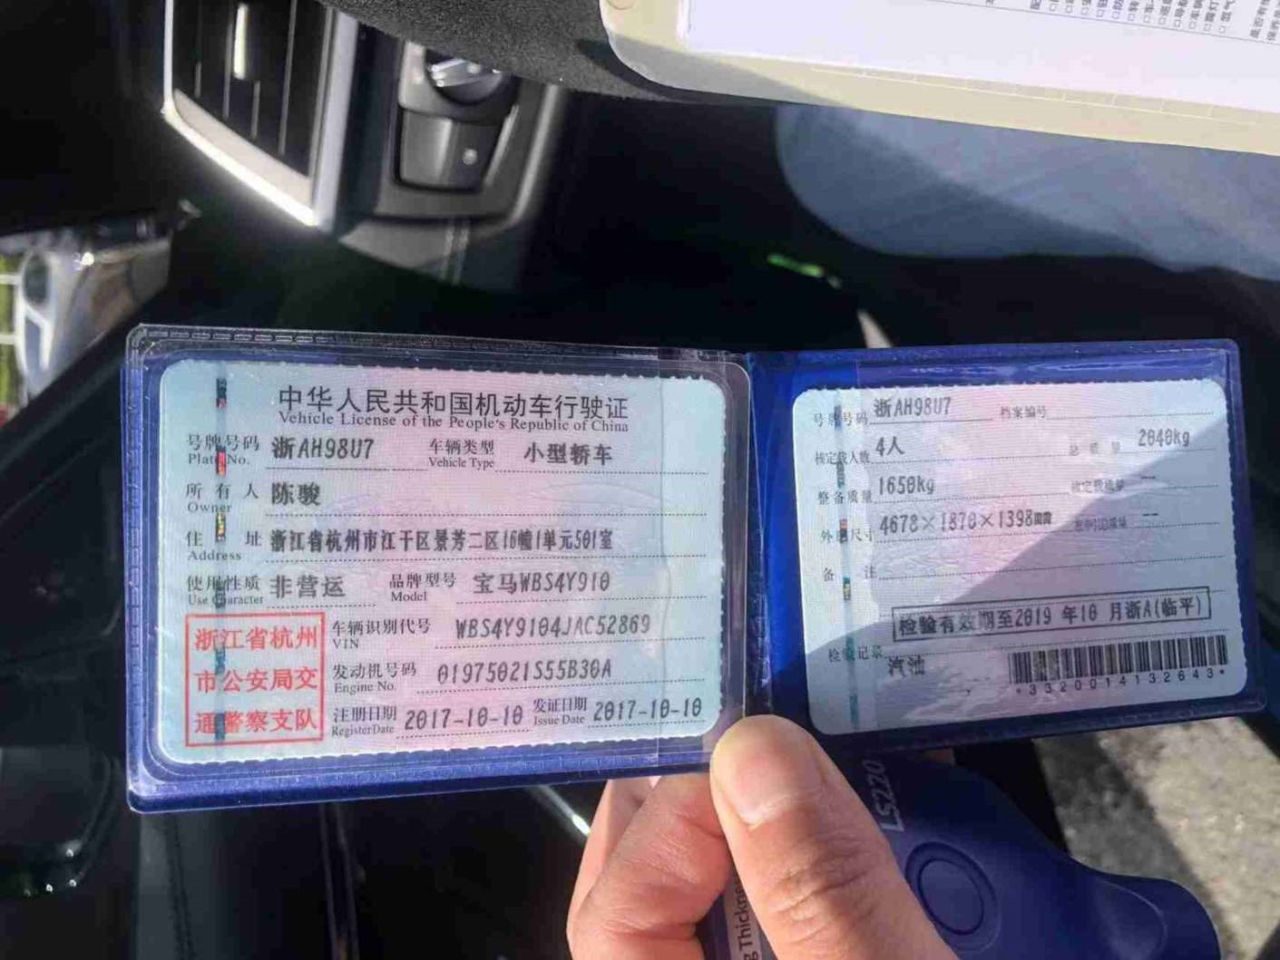 中华人民共和国机动车行驶证
Vehicle License of the People's Republic of China
号牌号码 浙AH98U7 车辆类型 小型轿车
Plate No. Vehicle Type
所有人 陈骏
Owner
住址 浙江省杭州市江干区景芳二区16幢1单元501室
Address
使用性质 非营运 品牌型号 宝马WBS4Y910
Use Character Model
浙江省杭州
市公安局交
通警察支队
车辆识别代号 WBS4Y9104JAC52869
VIN
发动机号码 01975021S55B30A
Engine No.
注册日期 2017-10-10 发证日期 2017-10-10
Register Date Issue Date
号牌号码 浙AH98U7 档案编号
核定载人数 4人 总质量 2040kg
整备质量 1650kg 核定载质量 —
外廓尺寸 4678×1870×1398mm —
备注
检验有效期至2019年10月浙A(临平)
检验记录 汽油
*3320014132643*
LS220
Thickness